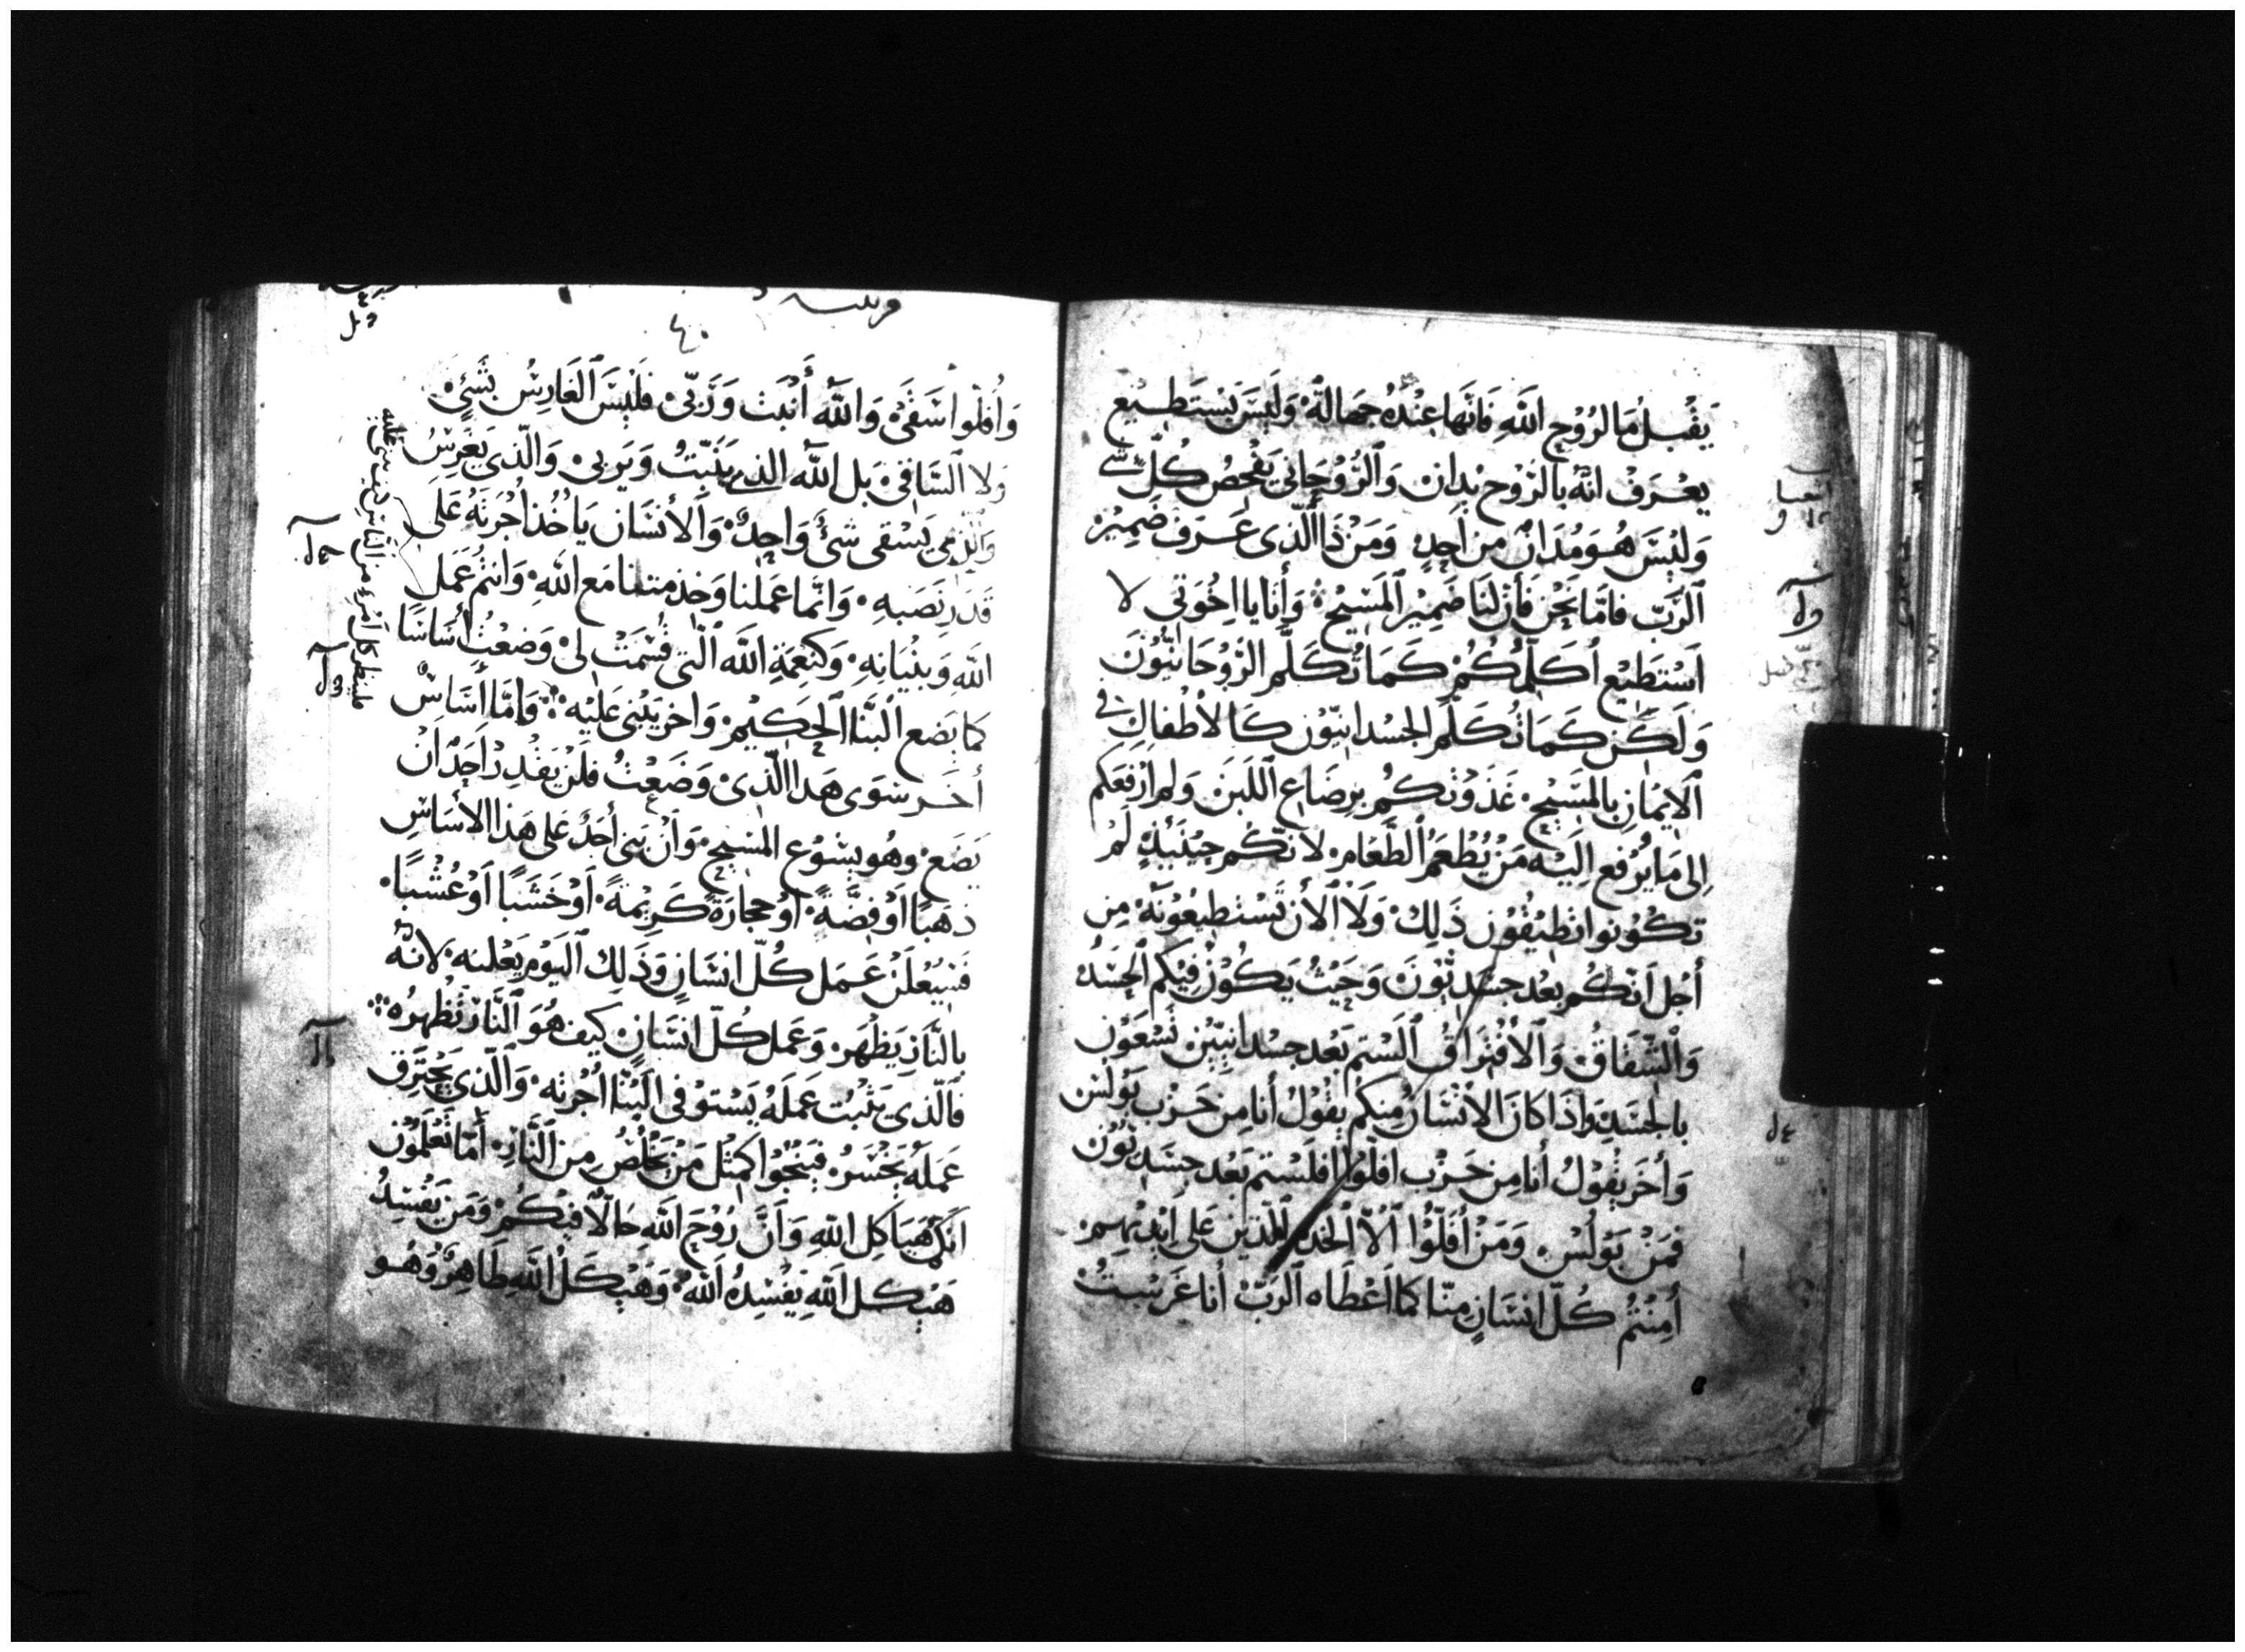 يَقْبَلُ مَا لرُوْحِ اللَّهِ فَانَّهَا عِنْدُهُ جَهَالَةٌ وَلَيسَ يَسْتَطِيعُ
يعْرَفْ انَّهُ بالرُوْحِ يُدانْ وَالرُّوْحَانِيَ يَفْحَصُ كُلّ شَيْ
وَلَيْسَ هُوَ مُدَانٌ مِن اَحِدٍ وَمَنْ ذَا الَّذِى عَرَفَ ضَمِيْرْ
الرَبّ فامَّا نَحْنُ فَأنَ لَنَا ضَمِيْر المَسِيْحِ وَأَنَا يا اخْوَتِى لا
اَسْتَطِيْع أكَلّمُكُمْ كَمَا تُكَلَّم الرَّوْحَانيُّونَ
وَلَكِنْ كَمَا تُكَلَّم الجَسْدانيّون كَالاطْفال فِي
الايْمَانِ بالمَسِيْحِ غَذَوْتكُم بِرضَاعِ اللَبَنْ وَلم ارْفعَكم
اِلى مَا يُرْفع اِليْه مَنْ يُطْعَمُ الطَّعَام لانّكُم حِيْنَئِذٍ لَمْ
تكُوْنوا تطِيْقُوْن ذَلِكَ وَلا الأن تَسْتطِيْعُوْنَهُ مِن
أجْل انّكُم بعْد جسَديُّوْنَ وَحَيْثُ يَكوُنْ فِيْكم الحَسَدُ
وَالشّقَاقُ وَالأفْتِرَاقُ الَسْتم بَعْد جسْدانِيّيْن تَسْعَوْن
بالجَسَدِ وَاذَا كانَ الانْسَانُ مِنكم يقُوْلُ أنا مِن حَزْب بَوْلسْ
وَأخَر يقوْلُ أنا مِن حَزْب افلّوا فَلَسْتم بَعْد جسَديُّوْن
فمَنْ بَوْلُسْ وَمَنْ أفَلّوُا الاّ الخدم الذين عَلى ايْديْهِمْ
أمِنْتُمْ كُلّ انسَانٍ منّا كما اعْطَاه الرَبّ أنا غَرَسْتُ
٤٠
وَأُفلّوا سَقَىْ وَاللّهُ أنْبَتَ وَرَبّى فَلَيْسَ الغَارِسُ بشَىْءٍ
وَلا السَّاقِى بَل اللّه الذى يُنَبّتُ وَيَربى وَالّذى يَغْرِسُ
وَالّذى يَسْقى شىْءٌ وَاحِدٌ وَالأنْسَان يَاخُذ اُجْرَتَهُ عَلى
قَدَرِ نَصَبهِ وَانَّما عَمَلنا وَخذمتنا مَع اللّهِ وَانتُم عَمَل
اللّهِ وَبنْيَانِهِ وَكنِعمَةِ اللّه الّتى قُسّمَتْ لى وَضعْتُ أسَاسًا
كما يَضَع البَنَّا الحَكِيْم وَاخَر يَبْنى عَلَيْه وَامَّا أسَاسٌ
أخَر سَوَى هَذا الّذِى وَضَعْتُ فلَنْ يقْدِر اَحَدٌ انْ
يَضَع وهُو يسُوْع المَسيحِ وَانْ بَنى أحَدٌ عَلى هَذا الأسَاسِ
ذهبًا اَوْ فِضَّةً اَوْ حجارَةً كَرِيْمَةً اَوْ خَشَبًا اَوْ عُشْبًا
فَسَيُعْلَنْ عَمَل كُلّ انسَانٍ وَذَلِكَ اليَوْم يَعْلنه لانّهُ
بالنَّار يَظْهَر وَعَمَل كُلّ انسَانٍ كيفَ هُوَ النَّار تُظْهرُه
فَالّذى يَثْبُت عَمَلهُ يَسْتوْفى البَنّا اُجْرَته وَالّذى يَحْترَق
عَمَلهُ يَخْسَرُ فيَنْجُوا كمِثْل مَنْ يَخْلُصُ مِن النَّارِ أمَا تَعْلَمُوْن
انَّكم هَيَاكِل اللّهِ وَانَّ رُوْحَ اللّه حَالاً فيْكُمْ وَمَن يَفْسِدُ
هَيْكل اللّهِ يَفْسِدُهُ اللّهُ وَهَيْكَلُ اللّهِ طَاهِرٌ وَهُو
فلينظر كل امرء من الناس كيف يبنى عليه